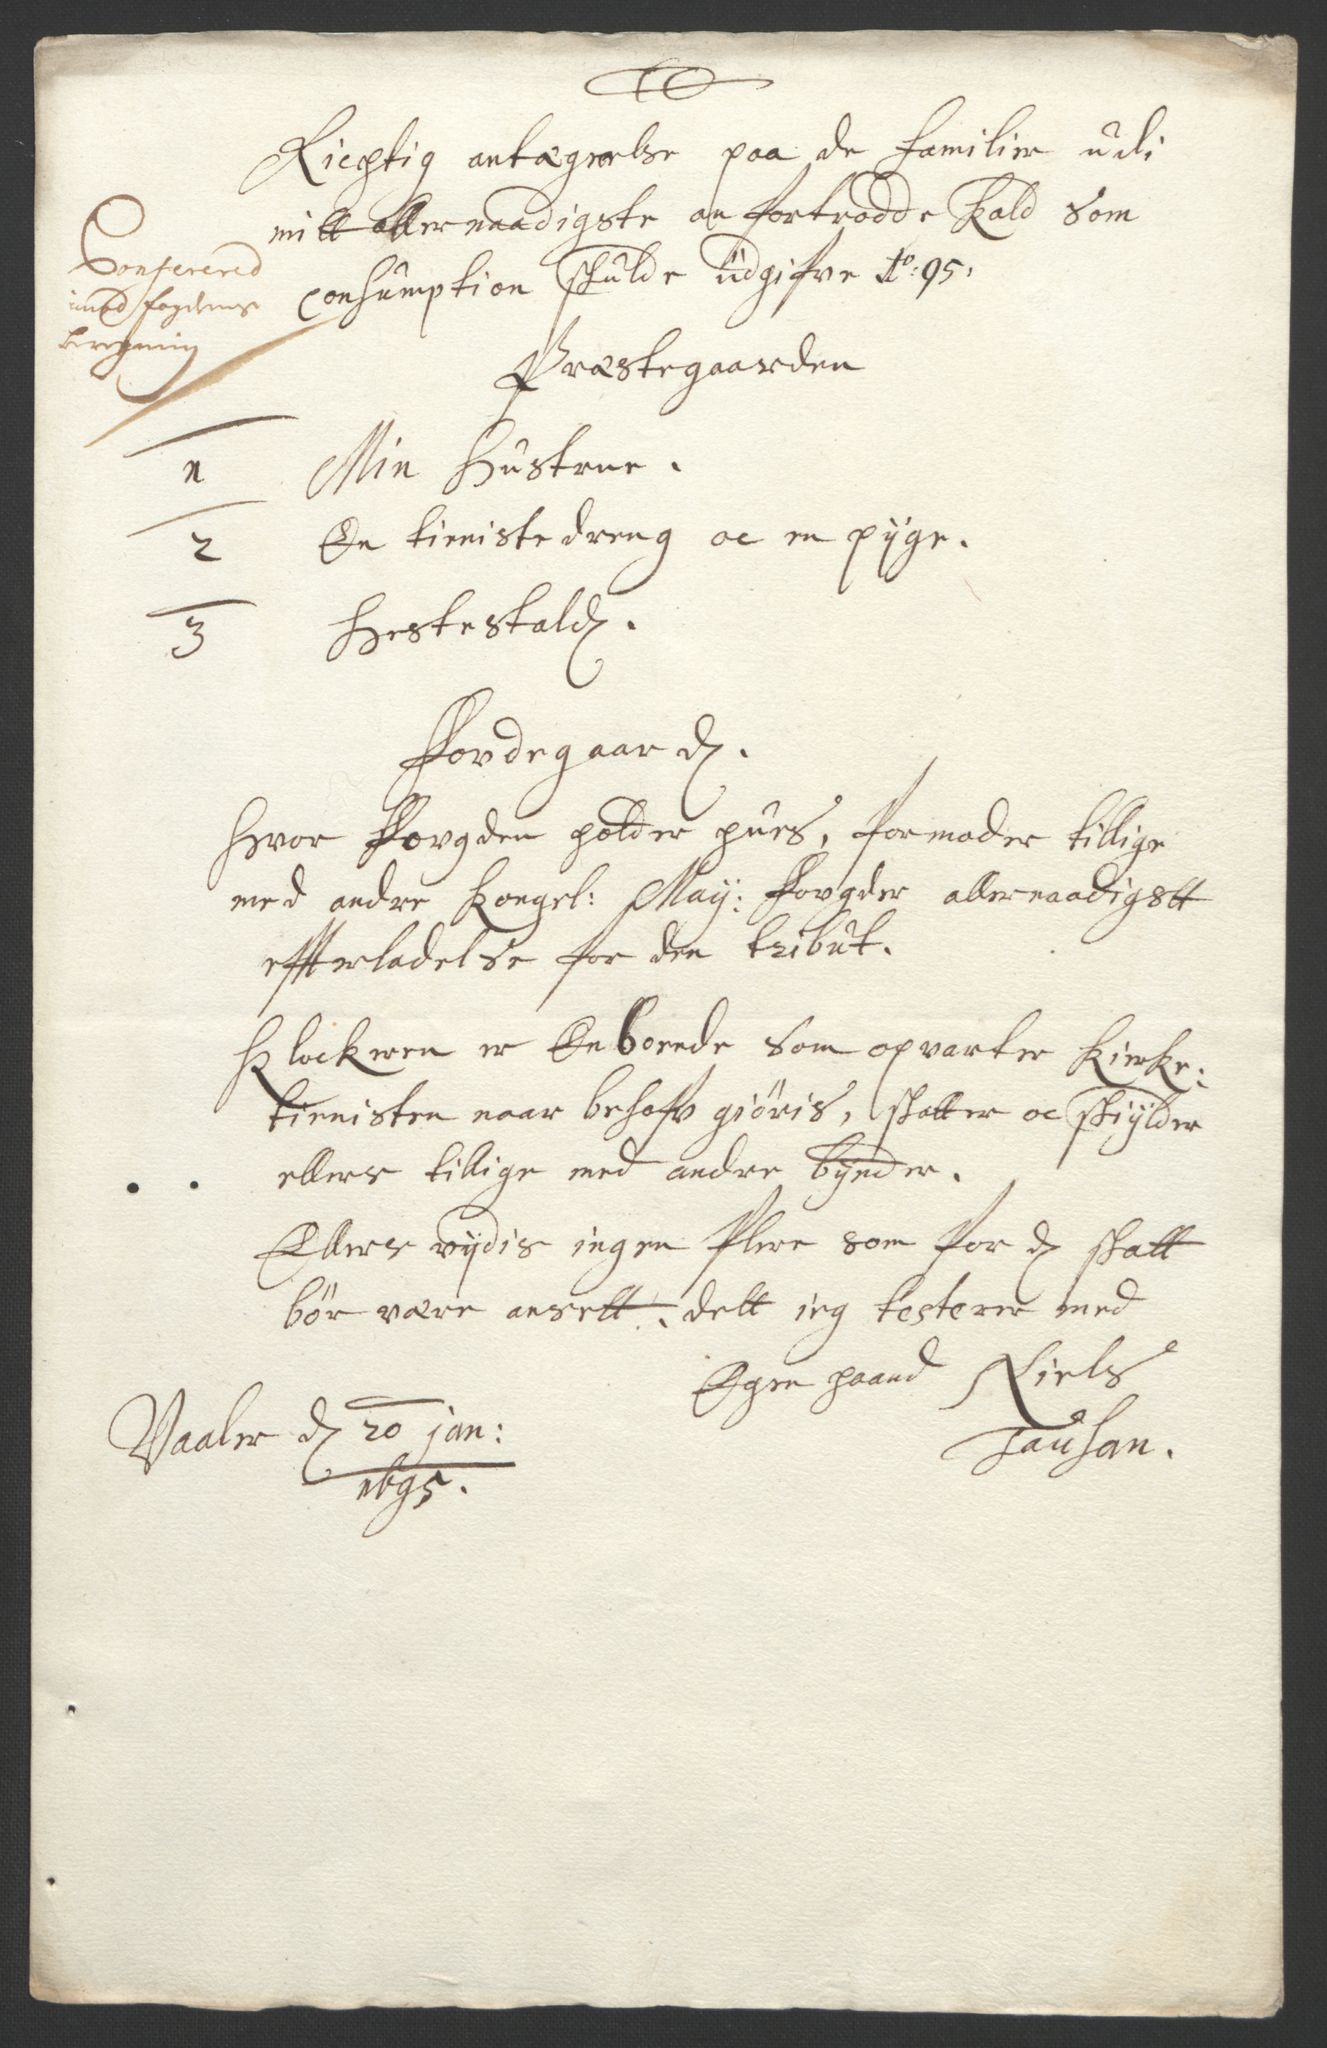 Riegtig antægnelse paa de familier udi
mitt allernaadigste anfortrodde Kald som
Conferered
imod fogdens
beregning
consumption skulde udgifve Ao: 95.
Præstegaarden
1 Min Hustrue.
2 En tienistedreng oc en pige.
3 Hestestald.
Fovdegaard.
Hvor Fovgden holder huus, formoder tillige
med andre Kongel: May: Fovgder allernaadigstt
effterladelse for den tribut.
Klockeren er En boende som opvarter Kierke-
tienisten naar behofv giøris, skatter oc skylder
ellers tillige med andre bynder.
Ellers vydis ingen flere som for d skatt
bør være ansett. dett ieg testerer med
Egen haand Niels
Tausan.
Vaaler d 20 jan:
1695.